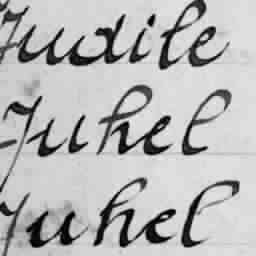 Judile
Juhel
Juhel